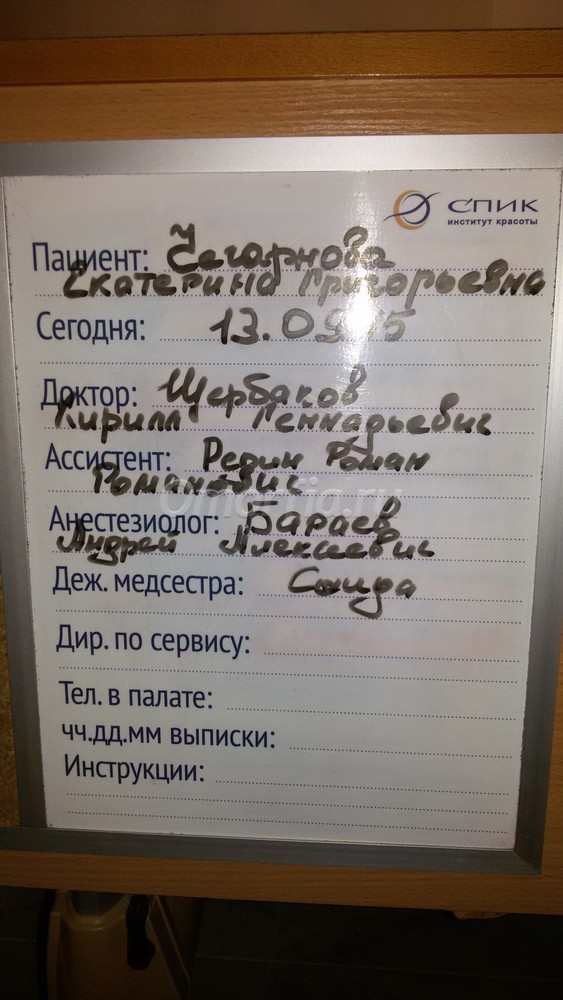 СПИК
институт красоты
Пациент: Чегарнова
Екатерина Григорьевна
Сегодня: 13.09.15
Доктор: Щербаков
Кирилл Геннадьевич
Ассистент: Редин Роман
Романович
Анестезиолог: Бараев
Андрей Алексеевич
Деж. медсестра:
Дир. по сервису:
Тел. в палате:
чч.дд.мм выписки:
Инструкции: